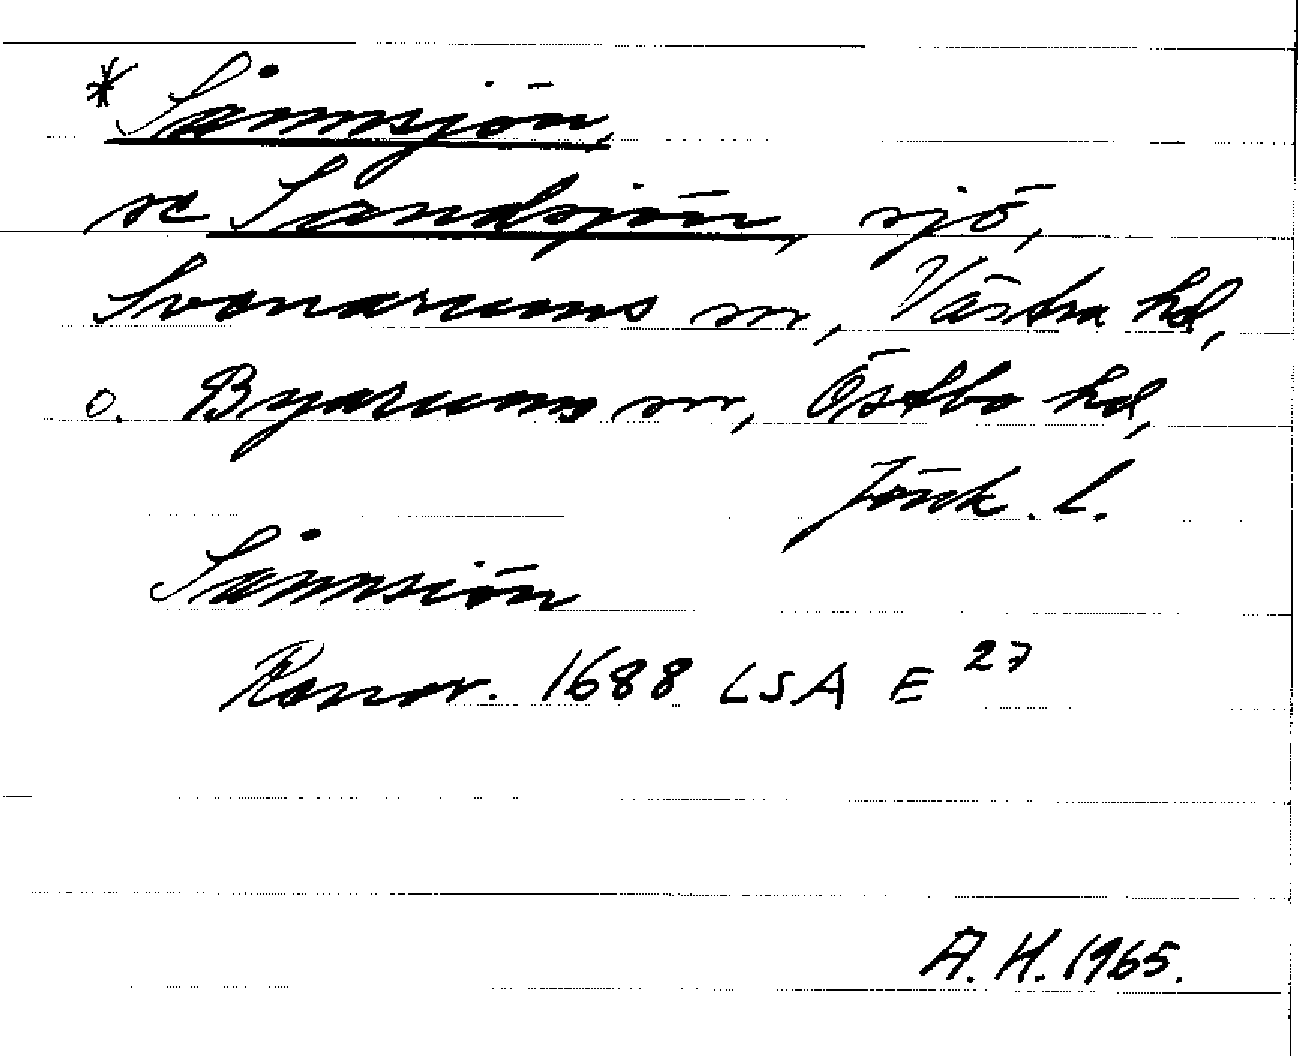 * Sånnsjön,
se Sandsjön, sjö,
Svenarums sn, Västra hd,
o. Byarums sn, Östbo hd,
Jönk. l.
Sånnsiön
Ransr. 1688 LSA E 27
A. H. 1965.